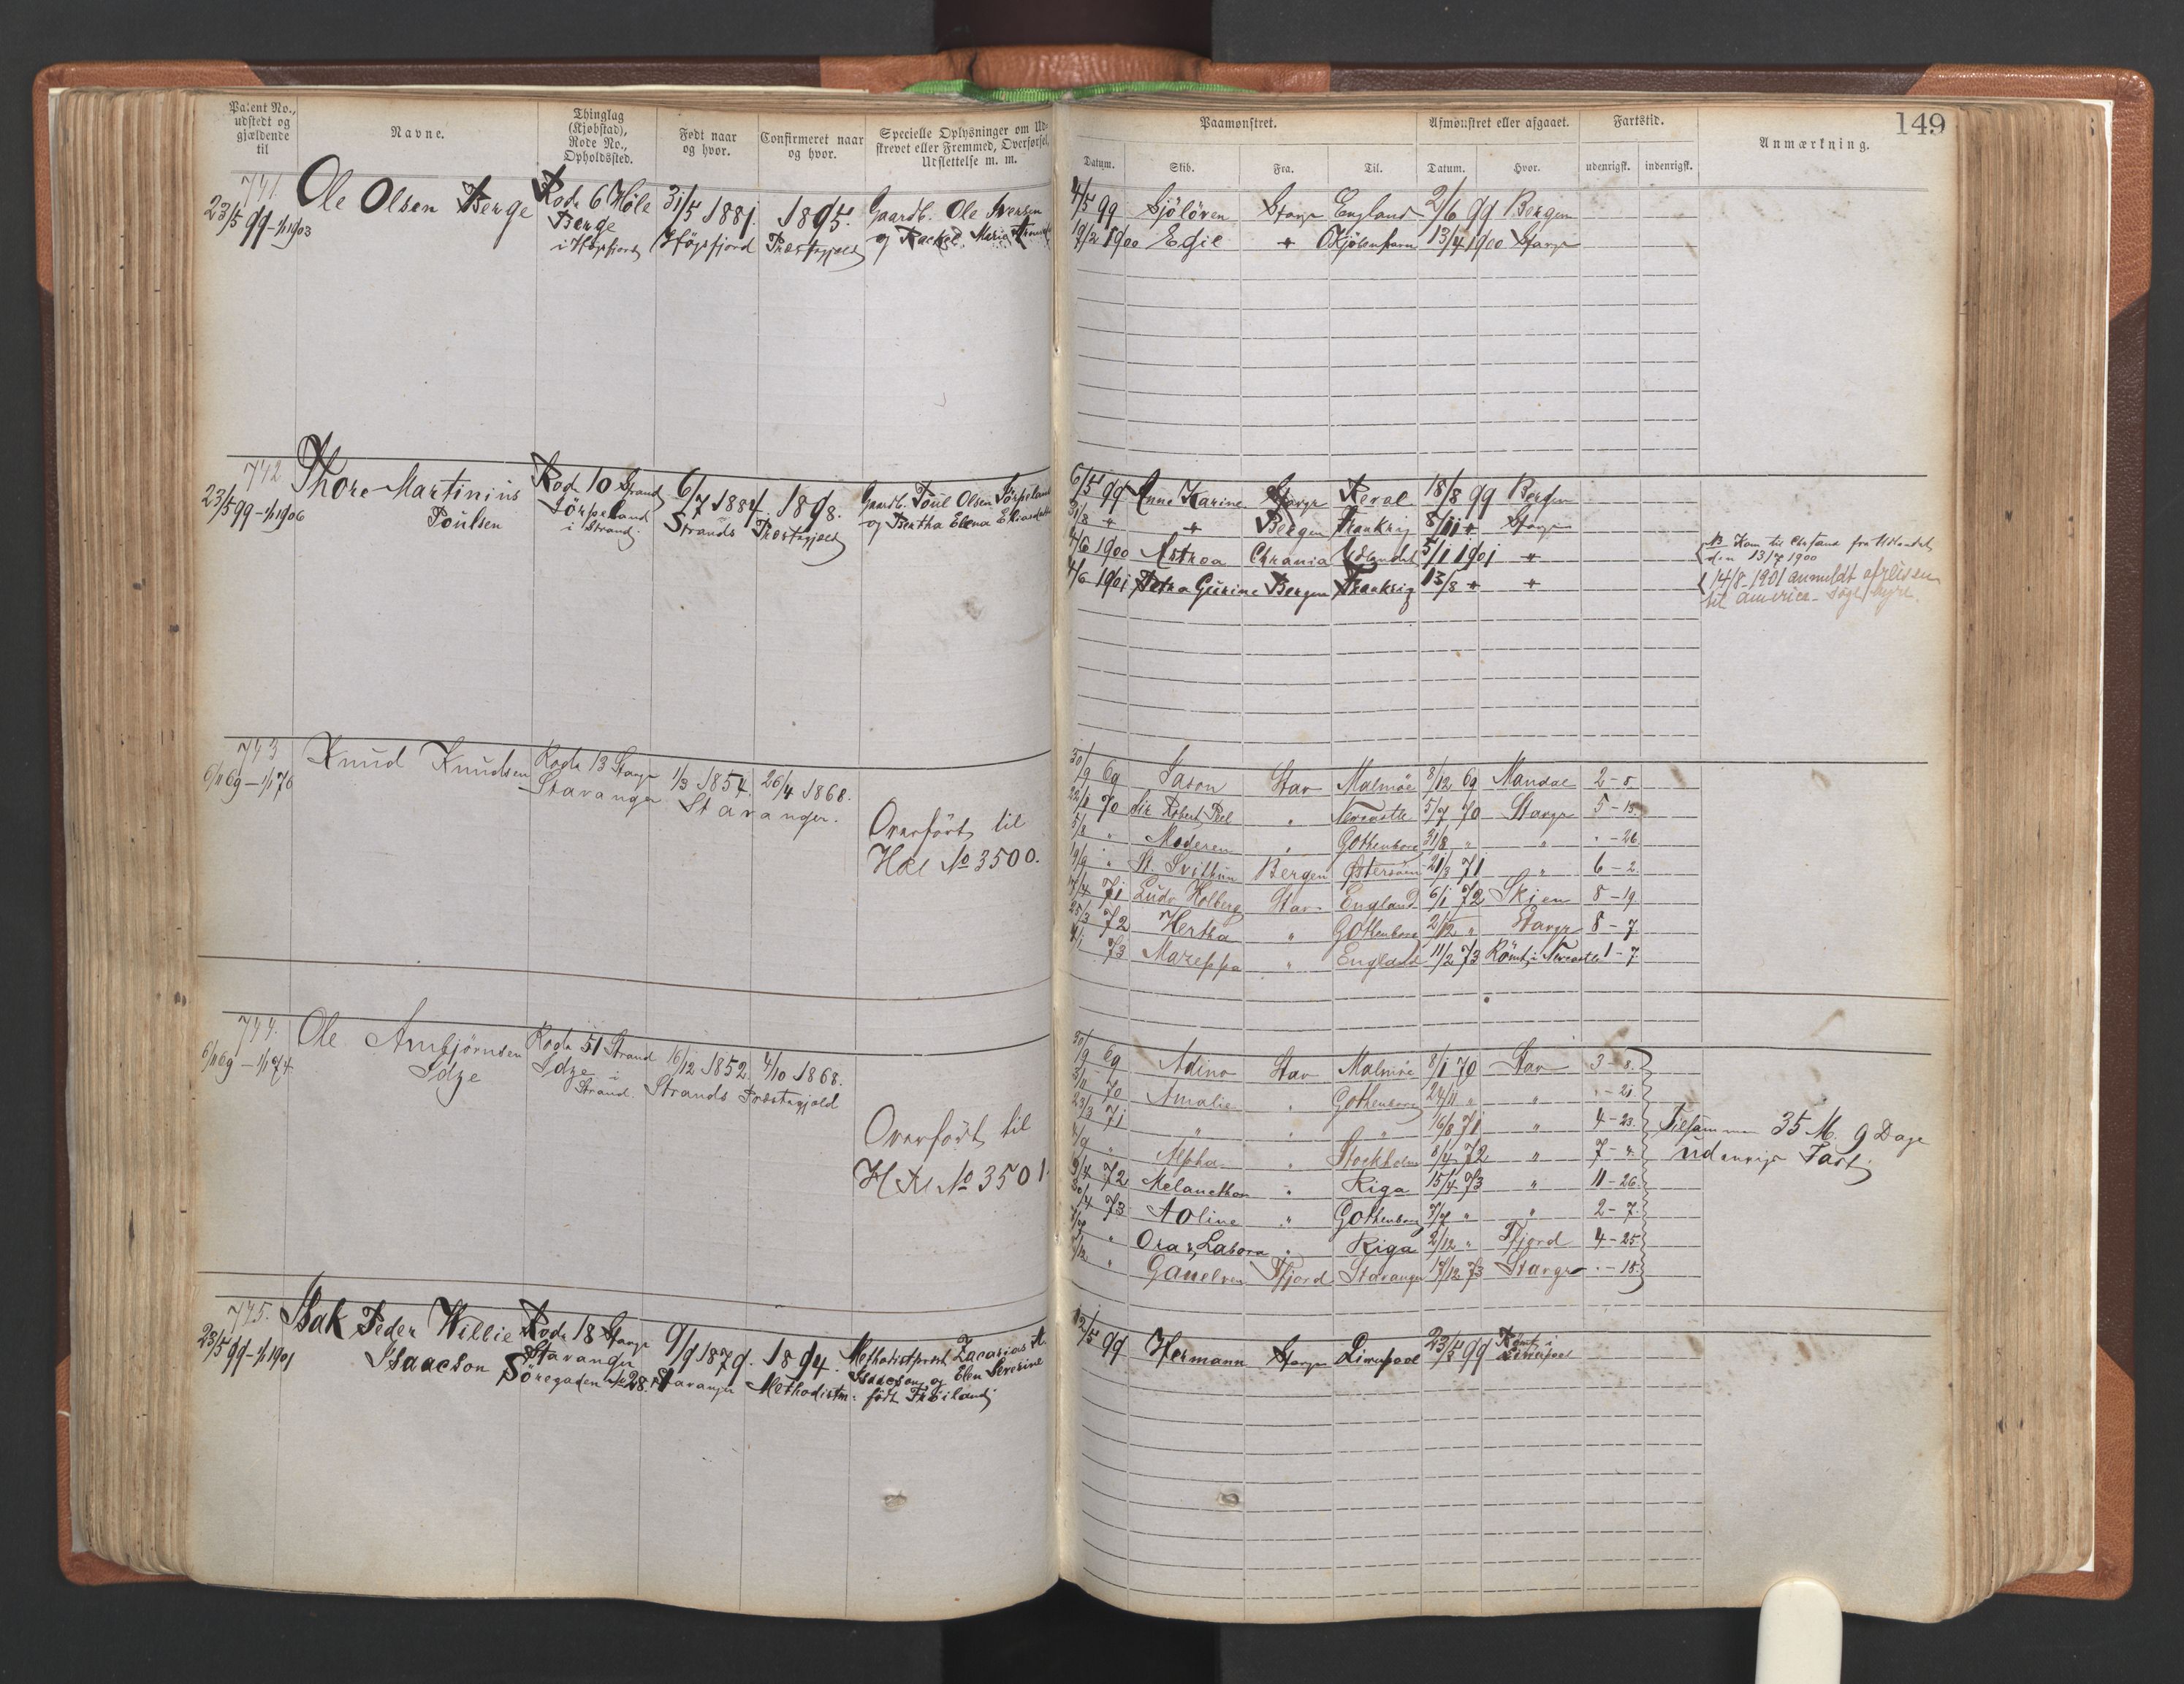 Patent No., udstedt og gjældende til
Navne.
Thinglag (Kjøbstad), Rode No., Opholdssted.
Født naar og hvor.
Confirmeret naar og hvor.
Specielle Oplysninger om Ud-
skrevet eller Fremmed, Overførsel,
Udslettelse m. m.
Paamønstret.
Afmønstret eller afgaaet.
Fartstid.
Anmærkning.
149
Datum.
Skib.
Fra.
Til.
Datum.
Hvor.
udenrigsk.
indenrigsk.
741
23/5 99 - 1/1 1903
Ole Olsen Berge
Rode 6 Høle
Berge
i Høgsfjord
31/5 1881
Høgsfjord
1895.
Præstegjæld
Gaardb. Ole Iversen
og Rachel Maria
4/5 99 Sjöloven Stavgr England 2/6 99 Bergen
19/2 1900 Egil + Kjöbenhavn 13/4 1900 Stavgr
742
23/5 99 - 1/1 1906
Thore Martinius
Poulsen
Rode 10 Strand
Jörpeland
i Strand.
6/7 1884.
Strands
1898.
Præstegjæld
Gaardb. Poul Olsen Jörpeland
og Bertha Elena
6/5 99 Anna Karine Stavgr Reval 18/8 99 Bergen
31/8 + + Bergen Frankrig 8/11 + Stavgr
4/6 1900 Astroa Chrania Udlandet 5/1 1901 +
4/6 1901 Petra Gurine Bergen Frankrig 13/8 + +
fra Udlandet
den 13/7 1900
14/8 - 1901 anmeldt afreisen
til America - søge hyre.
743
6/11 69 - 1/1 76
Knud Knudsen
Rode 13 Stavgr
Stavanger
1/3 1854. 26/4 1868.
Stavanger.
Overfört til
Hdl No 3500.
30/9 69 Jason Stav Malmöe 8/12 69 Mandal 2 - 8
22/1 70 Sir Robert Peel " Newcastle 5/7 70 Stavgr 5 - 15
5/8 " Moderen " Gothenborg 31/8 " " " - 26
19/9 " St. Svithun Bergen Østersöen 21/3 71 " 6 - 2
17/4 71 Ludv. Holberg Stav England 6/1 72 Skien 8 - 19
25/3 72 Hertha " Gothenborg 2/12 " Stavgr 8 - 7
4/1 73 Mareppa " England 11/2 73 Römt i Newcastle 1 - 7
744.
6/11 69 - 1/1 74
Ole Arnbjörnsen
Idze
Rode 51 Strand
Idze i
Strand.
16/12 1852. 4/10 1868.
Strands Præstegjæld
Overfört til
Hdl No 3501.
30/9 69 Adino Stav Malmöe 8/1 70 Stav 3 - 8
3/11 70 Amalie " Gothenborg 24/11 " " " - 21
23/3 71 " " " 16/8 71 " 4 - 23
" Alpha " Stockholm 8/4 72 " 7 -
9/4 72 Melancthon " Riga 15/4 73 " 11 - 26
30/4 73 Aoline " Gothenborg 7/7 " " 2 - 7
" Ora & Labora " Riga 2/12 " Tfjord 4 - 25
" Ganelven Tfjord Stavanger 17/12 73 Stavgr " - 15
Tilsammen 35 M. 9 Dage
udenrigs Fart
745.
23/5 99 - 1/1 1901
Isak Peder Willie
Isaacson
Rode 18 Stavgr
Stavanger
Söregaden No 28.
9/9 1879.
Stavanger
1894.
Methodistm:
Methodistprest Zacarias
Isaacson og Elen Severine
født Thoiland
12/5 99 Hermann Stavgr Liverpool 23/5 99 Römt i
Liverpool